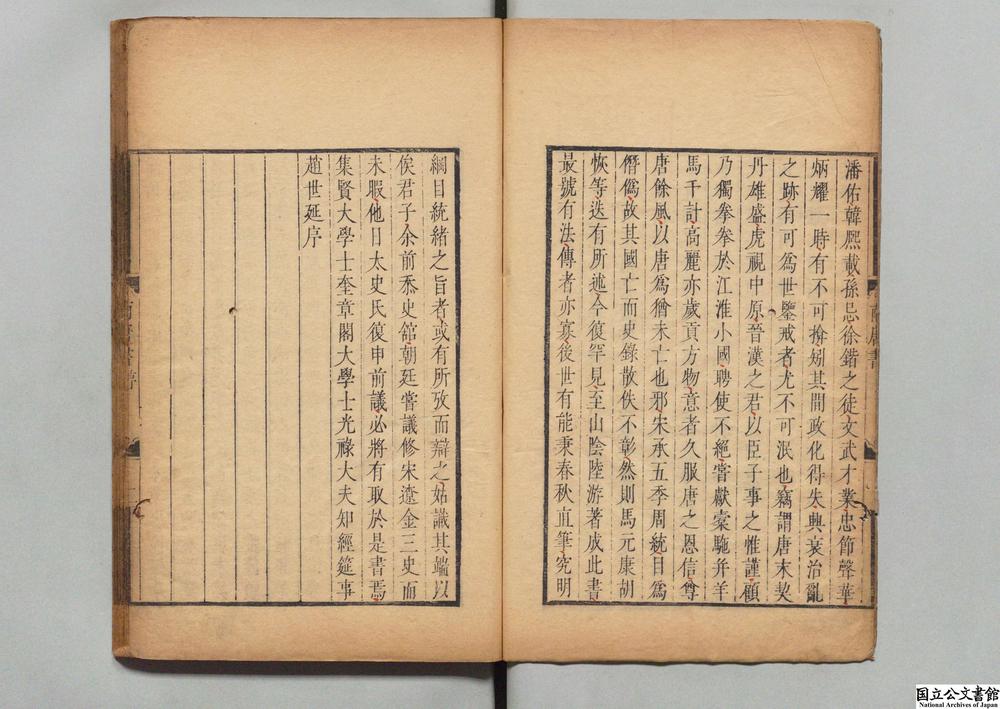 潘佑韓熙載孫忌徐鍇之徒文武才業忠節聲華
炳耀一時有不可揜矧其間政化得失興衰治亂
之跡有可為世鑒戒者尤不可泯也竊謂唐末契
丹雄盛虎視中原晉漢之君以臣子事之惟謹顧
乃獨拳拳於江淮小國聘使不絕嘗獻橐駞并羊
馬千計高麗亦歲貢方物意者久服唐之恩信尊
唐餘風以唐為猶未亡也邪宋承五季周統目為
僭偽故其國亡而史錄散佚不彰然則馬元康胡
恢等迭有所述今復罕見至山陰陸游著成此書
最號有法傳者亦寡後世有能秉春秋直筆究明
綱目統緒之旨者或有所攷而辯之姑識其端以
俟君子余前忝史舘朝廷嘗議修宋遼金三史而
未暇他日太史氏復申前議必將有取於是書焉
集賢大學士奎章閣大學士光祿大夫知經筵事
趙世延序
国立公文書館
National Archives of Japan